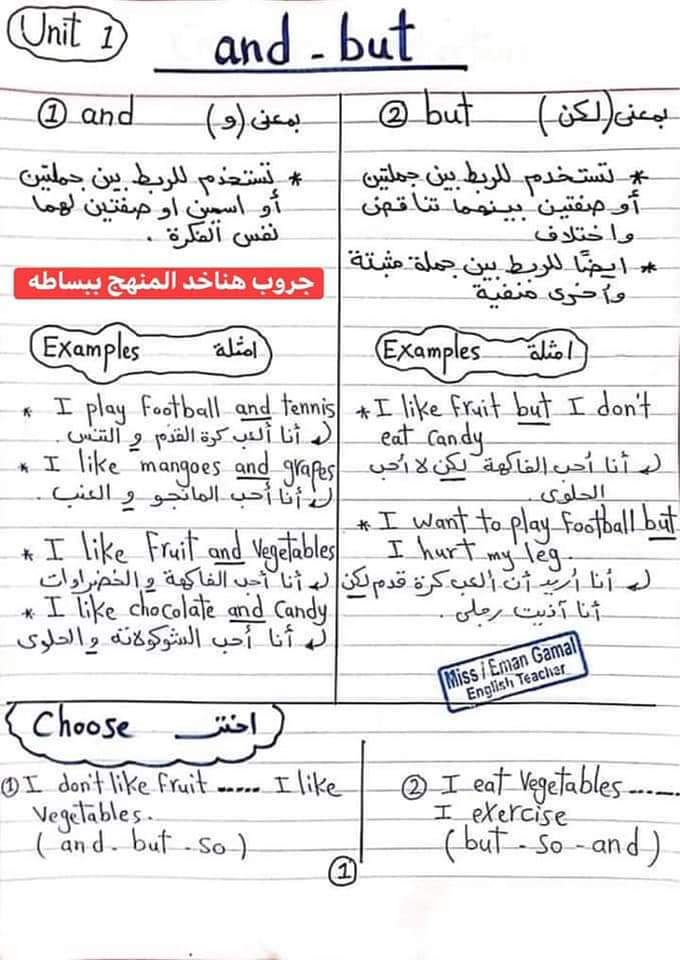 Unit 1
and - but
① and بمعنى (و)
* تستخدم للربط بين جملتين
أو اسمين او صفتين لهما
نفس الفكرة .
جروب هناخد المنهج ببساطه
Examples امثلة
* I play football and tennis
أنا ألعب كرة القدم و التنس .
* I like mangoes and grapes
أنا أحب المانجو و العنب .
* I like fruit and vegetables
أنا أحب الفاكهة و الخضراوات
* I like chocolate and candy
أنا أحب الشوكولاته و الحلوى
② but بمعنى (لكن)
* تستخدم للربط بين جملتين
أو صفتين بينهما تناقض
واختلاف
* ايضًا للربط بين جملة مثبتة
وأخرى منفية
Examples امثلة
* I like fruit but I don't
eat candy
أنا أحب الفاكهة لكن لا أحب
الحلوى.
* I want to play football but
I hurt my leg.
أنا أريد أن ألعب كرة قدم لكن
أنا آذيت رجلى .
Miss / Eman Gamal
English Teacher
Choose اختر
① I don't like fruit ...... I like
vegetables.
( and - but - so )
② I eat vegetables .......
I exercise
( but - so - and )
①